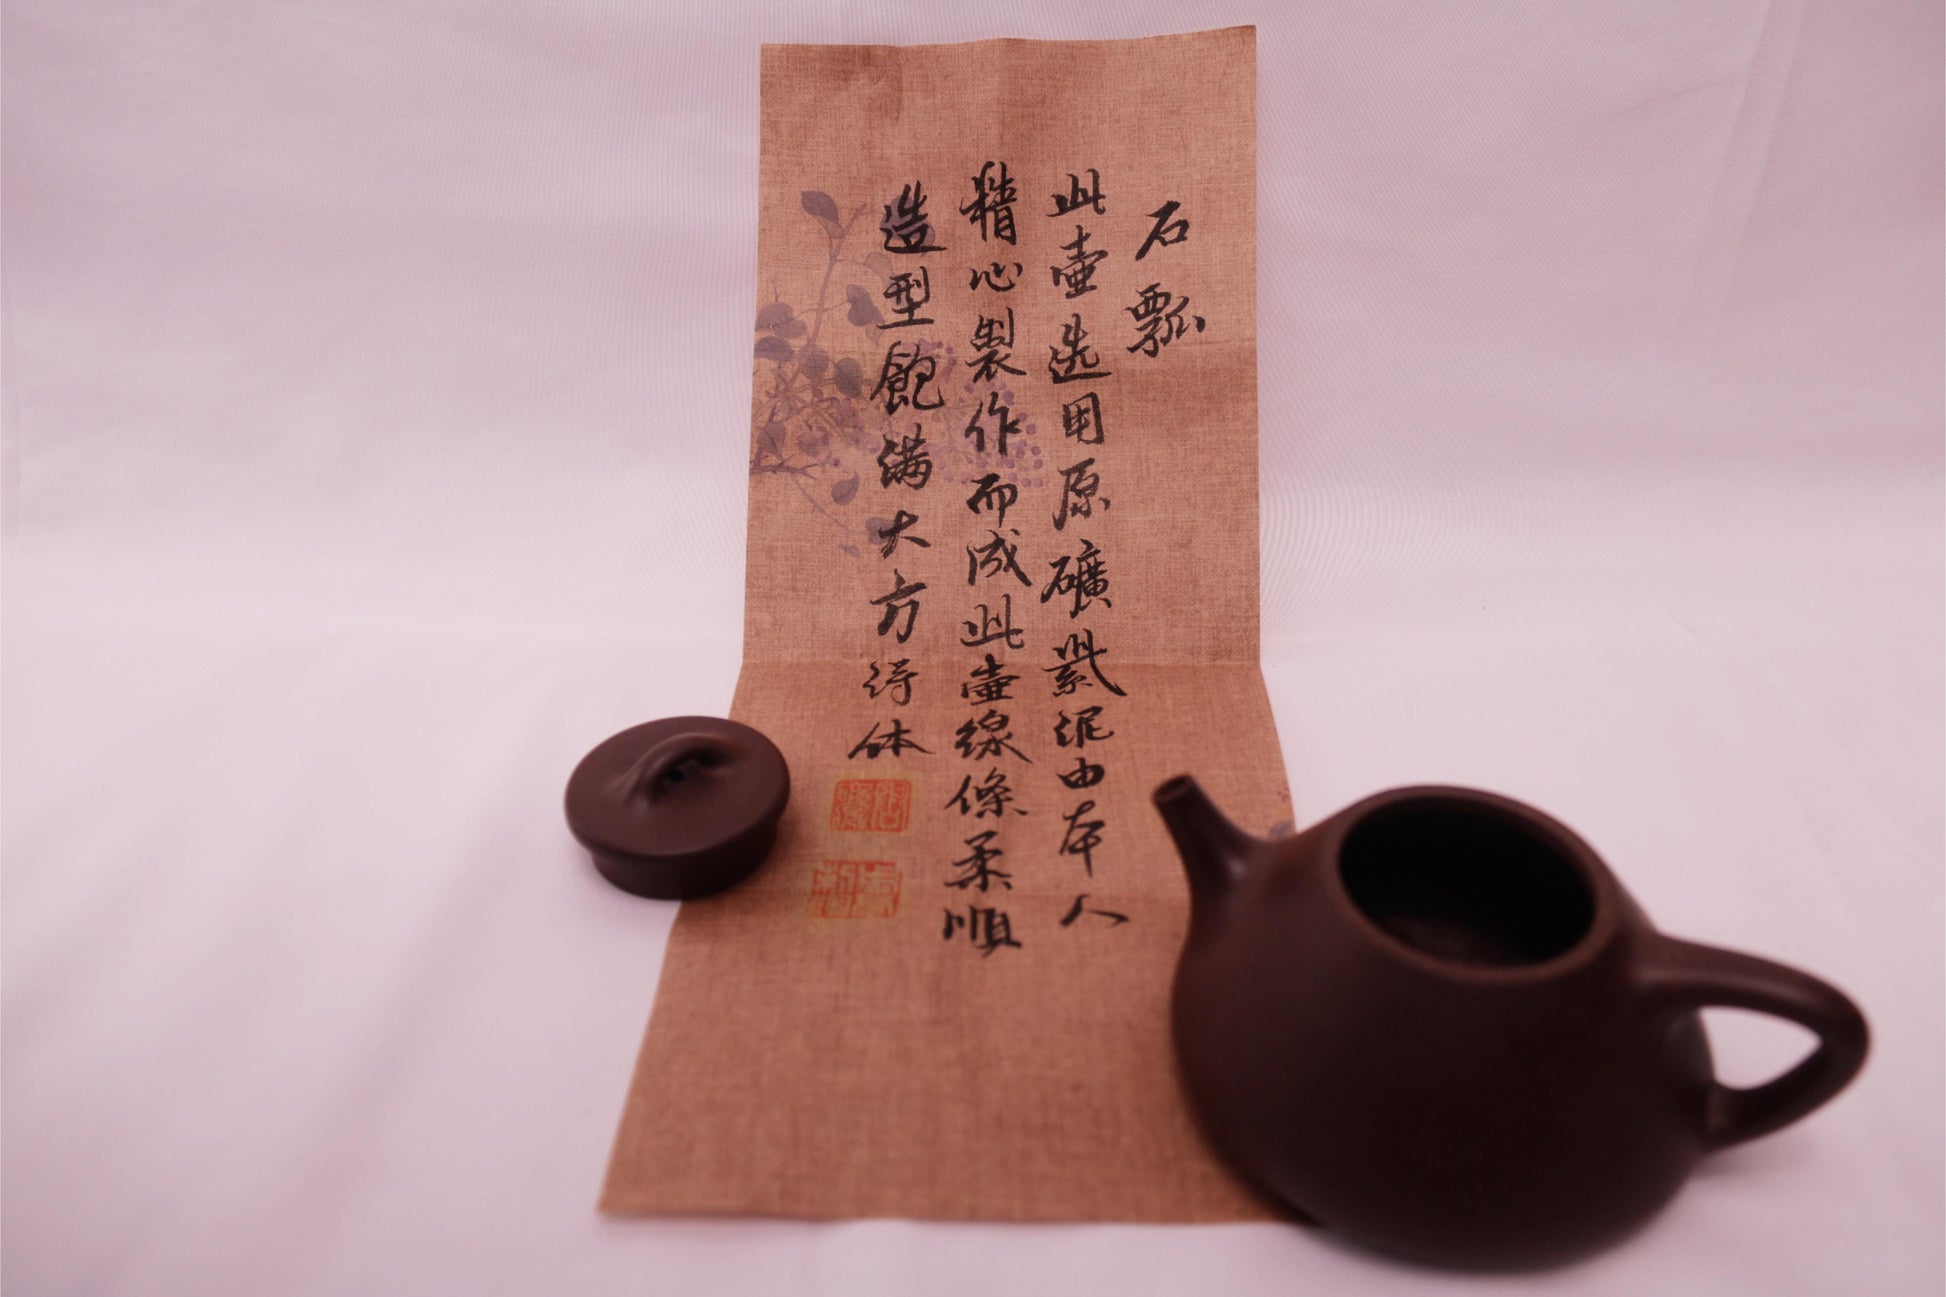 石瓢
此壺选用原礦紫泥由本人
精心製作而成此壺線條柔順
造型飽满大方得体